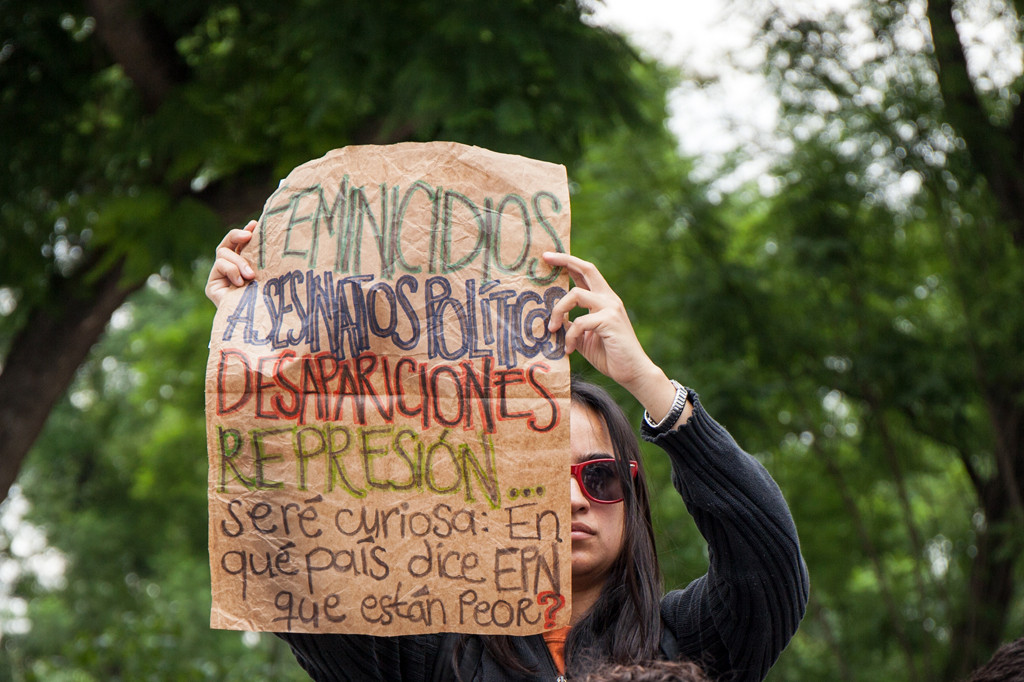 FEMINICIDIOS
ASESINATOS POLÍTICOS
DESAPARICIONES
REPRESIÓN...
seré curiosa: En
qué país dice EPN
que están PEOR?